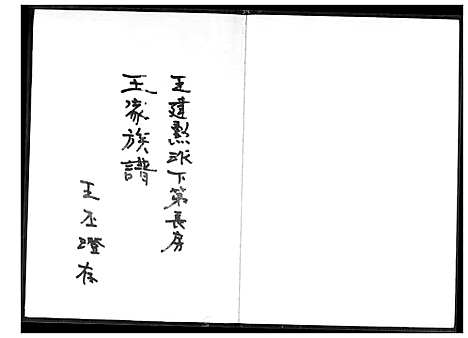 王建勲派下第長房
王家族譜
王丕澄存